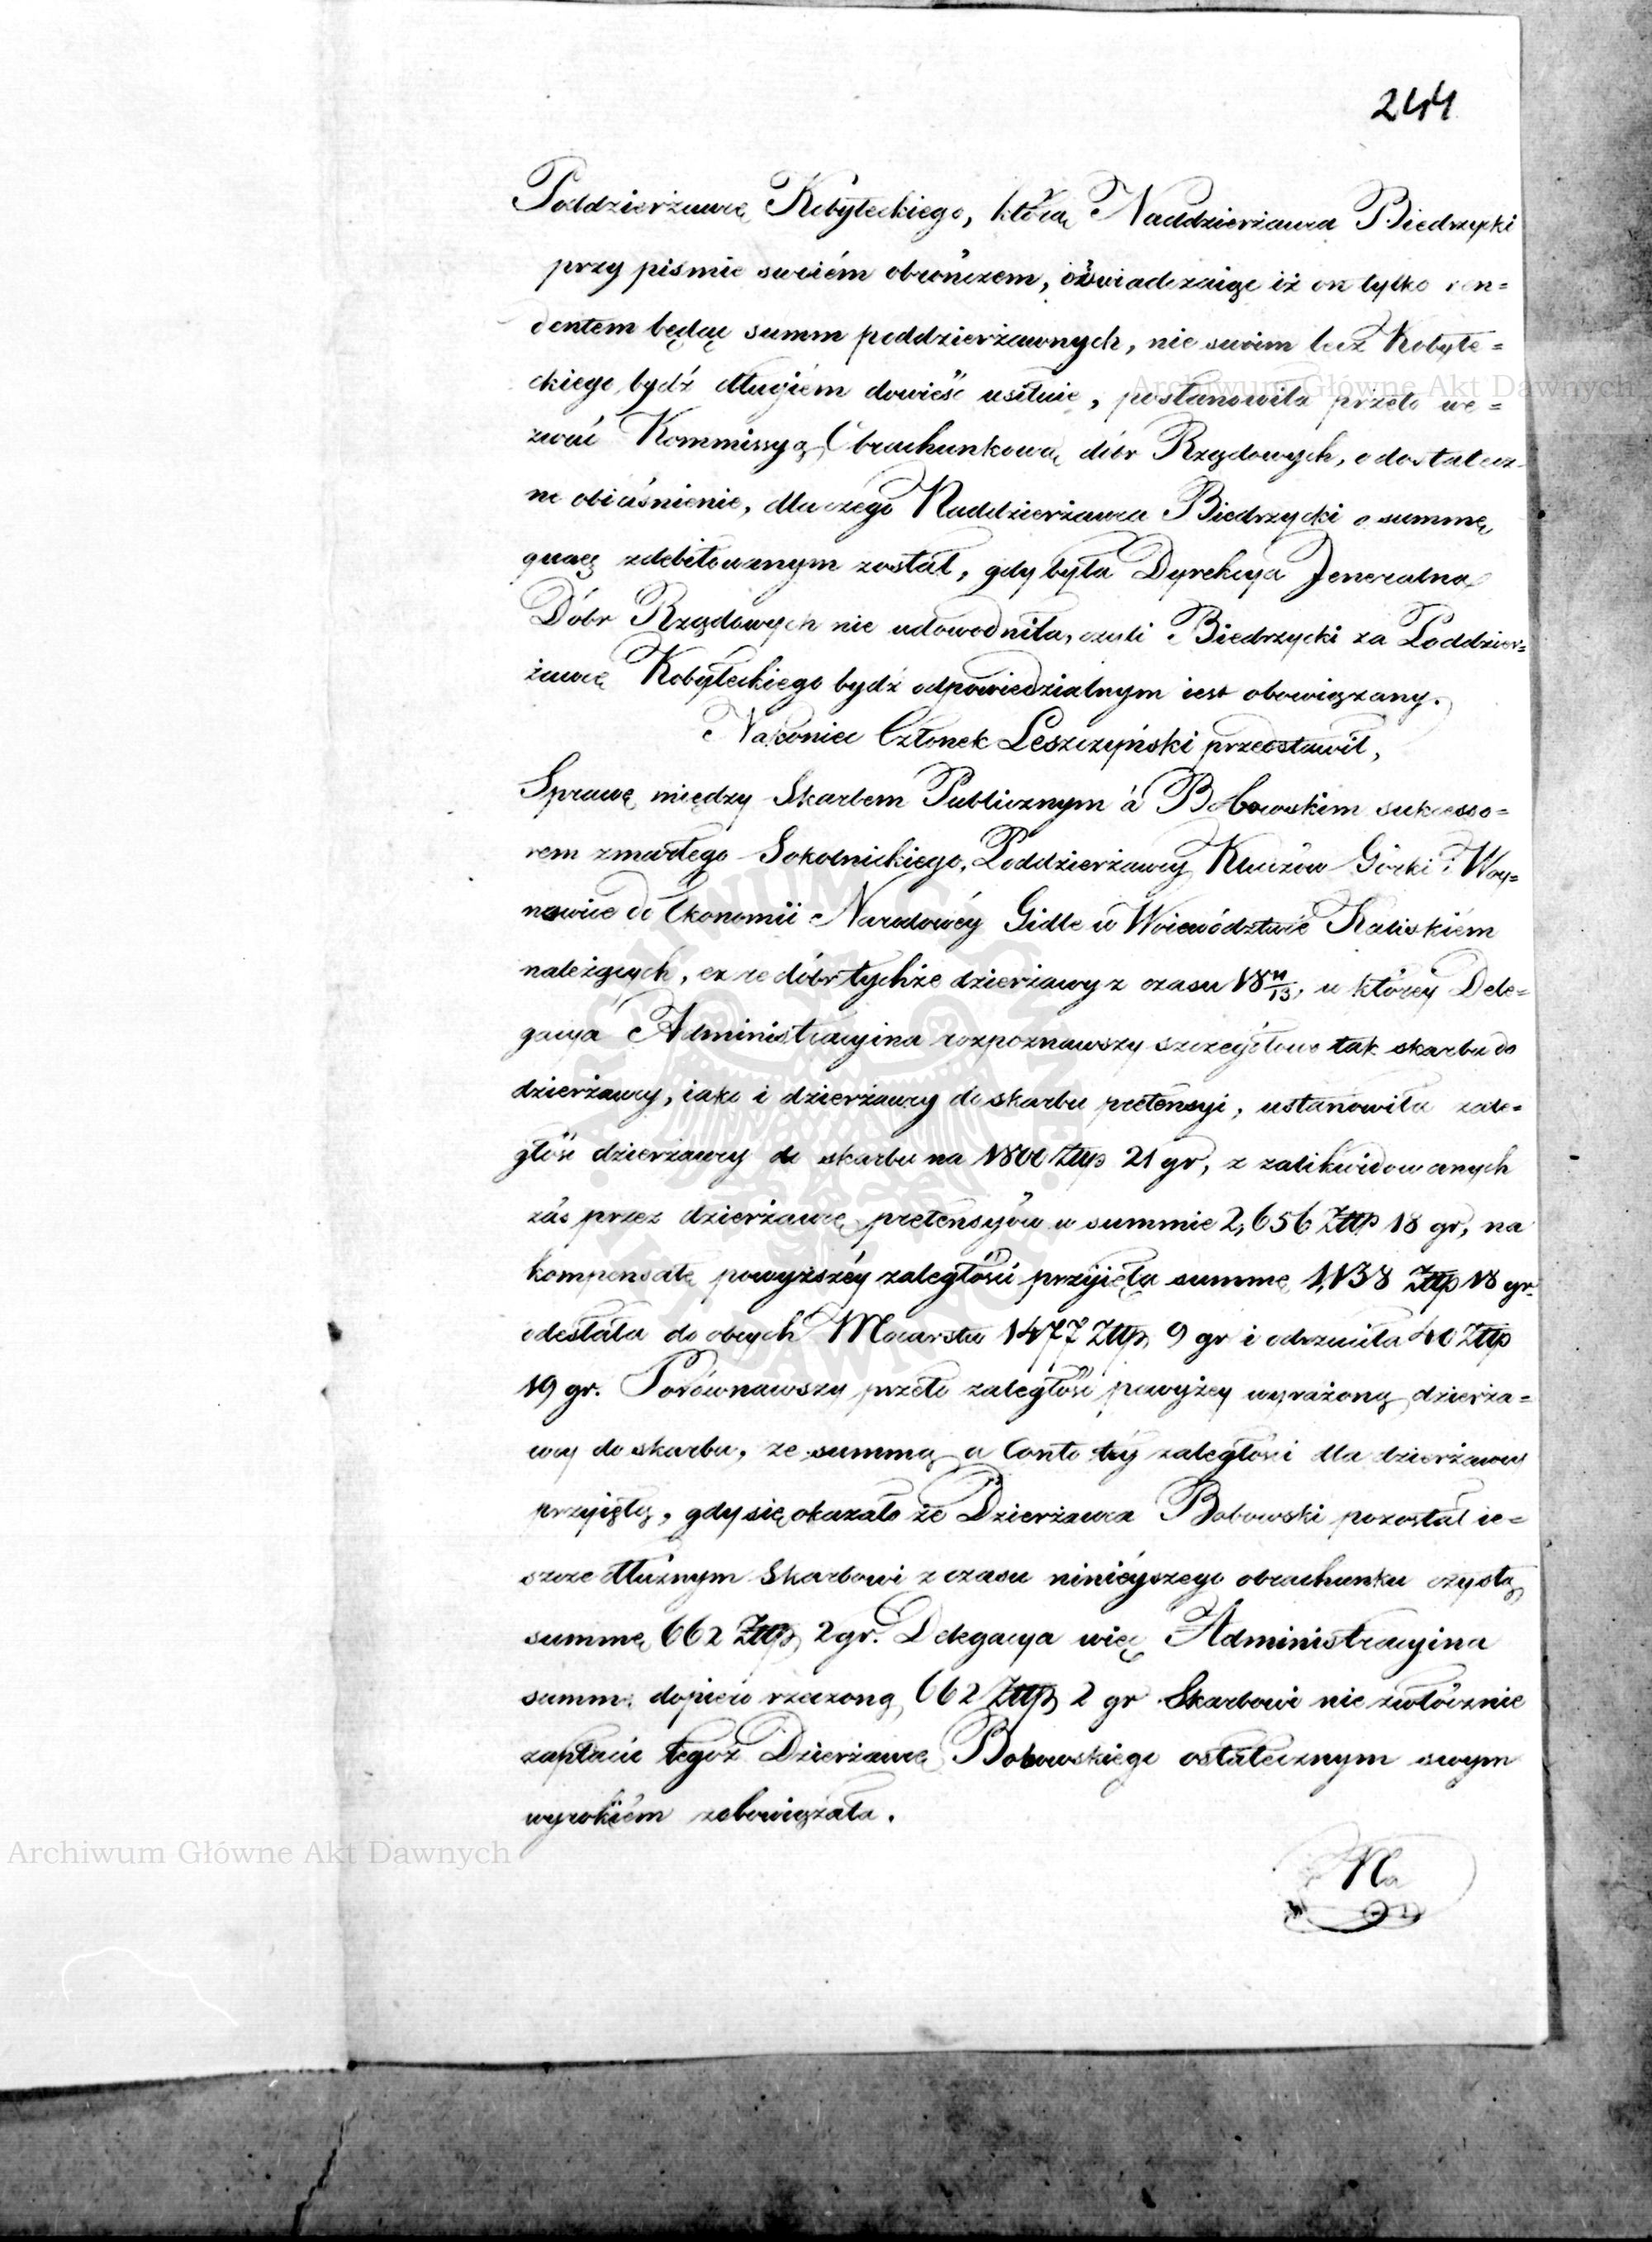 244
Poddzierżawcę Kobyłeckiego, którą Naddzierżawca Biedrzycki
przy piśmie swoiém obrończem, oświadczaiąc iż on tylko ren=
dentem będąc summ poddzierżawnych, nie swoim lecz Kobyłe=
ckiego bydź długiém dowieść usiłuie, postanowiła przeto we=
zwać Kommissyą Obrachunkową dóbr Rządowych, o dostatecz=
ne obiaśnienie, dla czego Naddzierżawca Biedrzycki o summę
quaes zdebitowanym został, gdy była Dyrekcya Jeneralna
Dóbr Rządowych nie udowodniła, czyli Biedrzycki za Poddzier=
żawcę Kobyłeckiego bydź odpowiedzialnym iest obowiązany.
Nakoniec Członek Leszczyński przedstawił,
Sprawę między Skarbem Publicznym á Bobowskim sukcesso=
rem zmarłego Sokolnickiego, Poddzierżawcy Kluczów Górki i Woy=
nowice do Ekonomii Narodowéy Gidle w Woiewództwie Kaliskiém
należących, ex re dóbr tychże dzierżawy z czasu 18 11/13, w któréy Dele=
gacya Administracyina rozpoznawszy szczegółowo tak skarbu do
dzierżawcy, iako i dzierżawcy do skarbu pretensyi, ustanowiła zale=
głość dzierżawcy do skarbu na 1800 Złtp 21 gr, z zalikwidowanych
zaś przez dzierżawcę pretensyów w summie 2,656 Złtp 18 gr, na
kompensatę powyższéy zaległości przyięła summę 1,138 Złtp 18 gr.
odesłała do obcych Mocarstw 1477 Złtp 9 gr i odrzuciła 40 Złtp
19 gr. Porównawszy przeto zaległość powyżey wyrażoną dzierża=
wcy do skarbu, ze summą a Conto téy zaległości dla dzierżawcy
przyiętą, gdy się okazało że Dzierżawca Bobowski pozostał ie=
szcze dłużnym Skarbowi z czasu ninieyszego obrachunku czystą
summę 662 Złtp 2 gr. Delegacya więc Administracyina
summę dopiero rzeczoną 662 Złtp 2 gr Skarbowi nie zwłócznie
zapłacić tegoż Dzierżawcę Bobowskiego ostatecznym swym
wyrokiém zobowiązała.
Na
Archiwum Główne Akt Dawnych
Archiwum Główne Akt Dawnych
ARCHIWUM GŁÓWNE AKT DAWNYCH